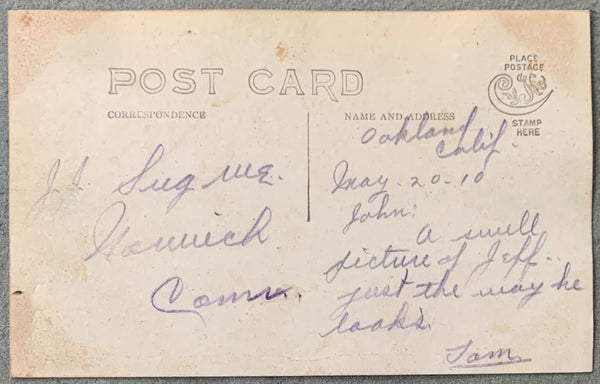 POST CARD
PLACE
POSTAGE
STAMP
HERE
CORRESPONDENCE
NAME AND ADDRESS
Oakland
Calif.
May-20-10
John:
A swell
picture of Jeff-
just the way he
looks.
Tom
J.
Conn.